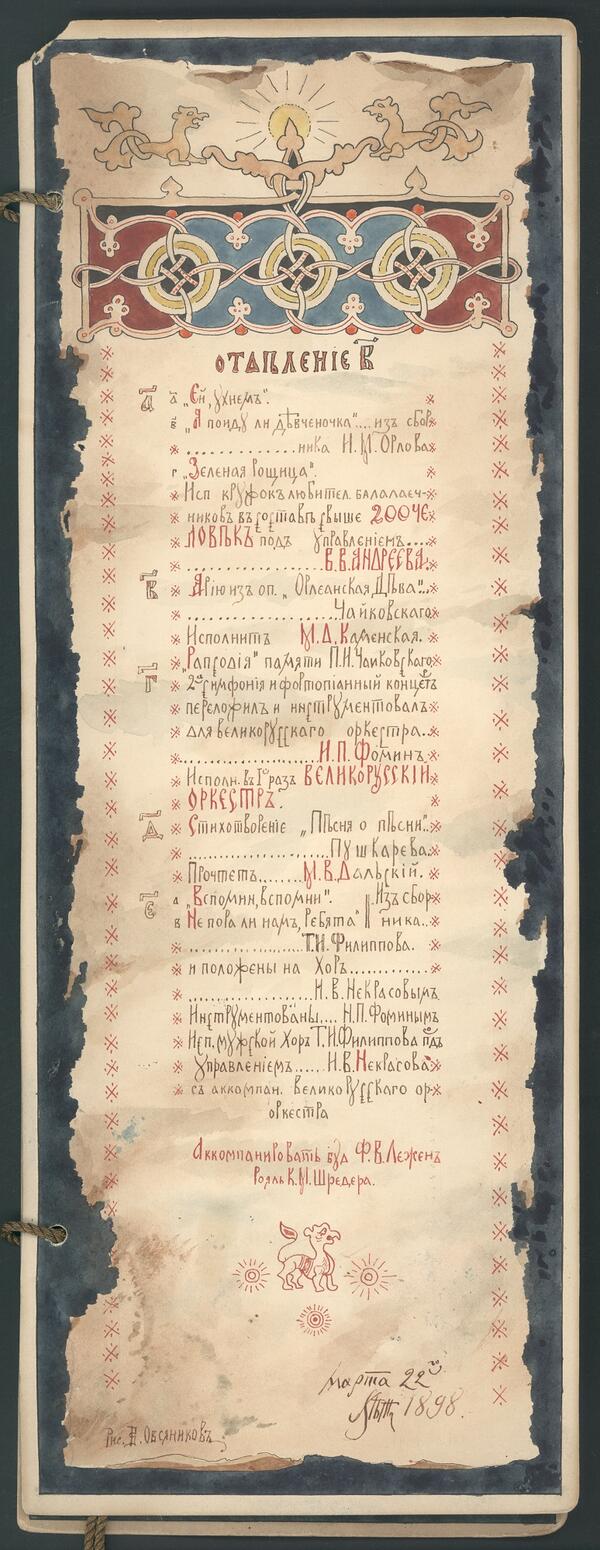 ОТДѢЛЕНІЕ В҃
А҃ а „Ей, ухнемъ".
в „Я пойду ли дѣвченочка"....изъ сбор
..............ника И.М.Орлова
г „Зеленая Рощица".
Исп кружокъ любител. балалаеч-
никовъ въ составѣ свыше 200 ЧЕ
ЛОВѢКЪ подъ управленіемъ....
..............В.В.АНДРЕЕВА.
В҃ Арію изъ оп. „Орлеанская Дѣва"...
..............Чайковскаго
Исполнитъ М.Д.Каменская.
Г҃ „Рапсодія" памяти П.И.Чайковскаго
2ая симфонія и фортопіанный концертъ
переложилъ и инструментовалъ
для великорусскаго оркестра..
..............Н.П.Фоминъ
Исполн. въ Iй разъ ВЕЛИКОРУССКІЙ
ОРКЕСТРЪ.
Д҃ Стихотвореніе „Пѣсня о пѣсни"..
..............Пушкарева.
Прочтетъ........М.В.Дальскій.
Є҃ а „Вспомни, вспомни". Изъ сбор
в Не пора ли намъ, ребята" ника..
..............Т.И.Филиппова.
и положены на Хоръ............
..............И.В.Некрасовымъ
Инструментованы.... Н.П.Фоминымъ
Исп. мужской Хоръ Т.И.Филиппова подъ
управленіемъ......И.В.Некрасова
съ аккомпан. великорусскаго ор-
оркестра
Аккомпанировать буд Ф.В.Лежен
Рояль К.М.Шредера.
марта 22го
1898.
Рис. А.Овсяниковъ